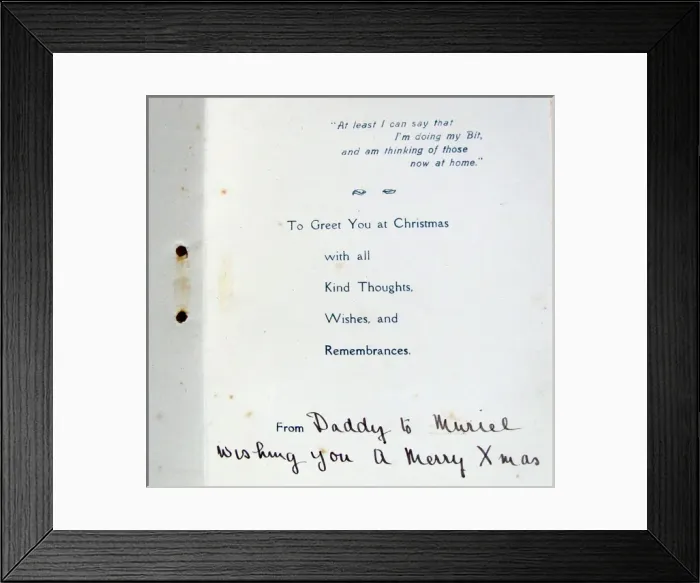 "At least I can say that
I'm doing my Bit,
and am thinking of those
now at home."
To Greet You at Christmas
with all
Kind Thoughts,
Wishes, and
Remembrances.
From Daddy to Muriel
Wishing you A Merry Xmas